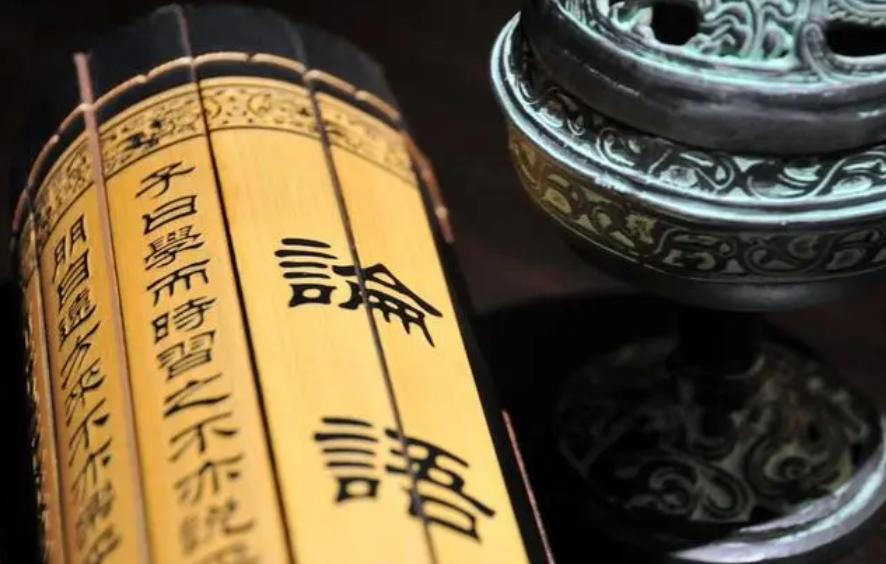 論語
子曰學而時習之不亦說乎
朋自遠方來不亦樂乎